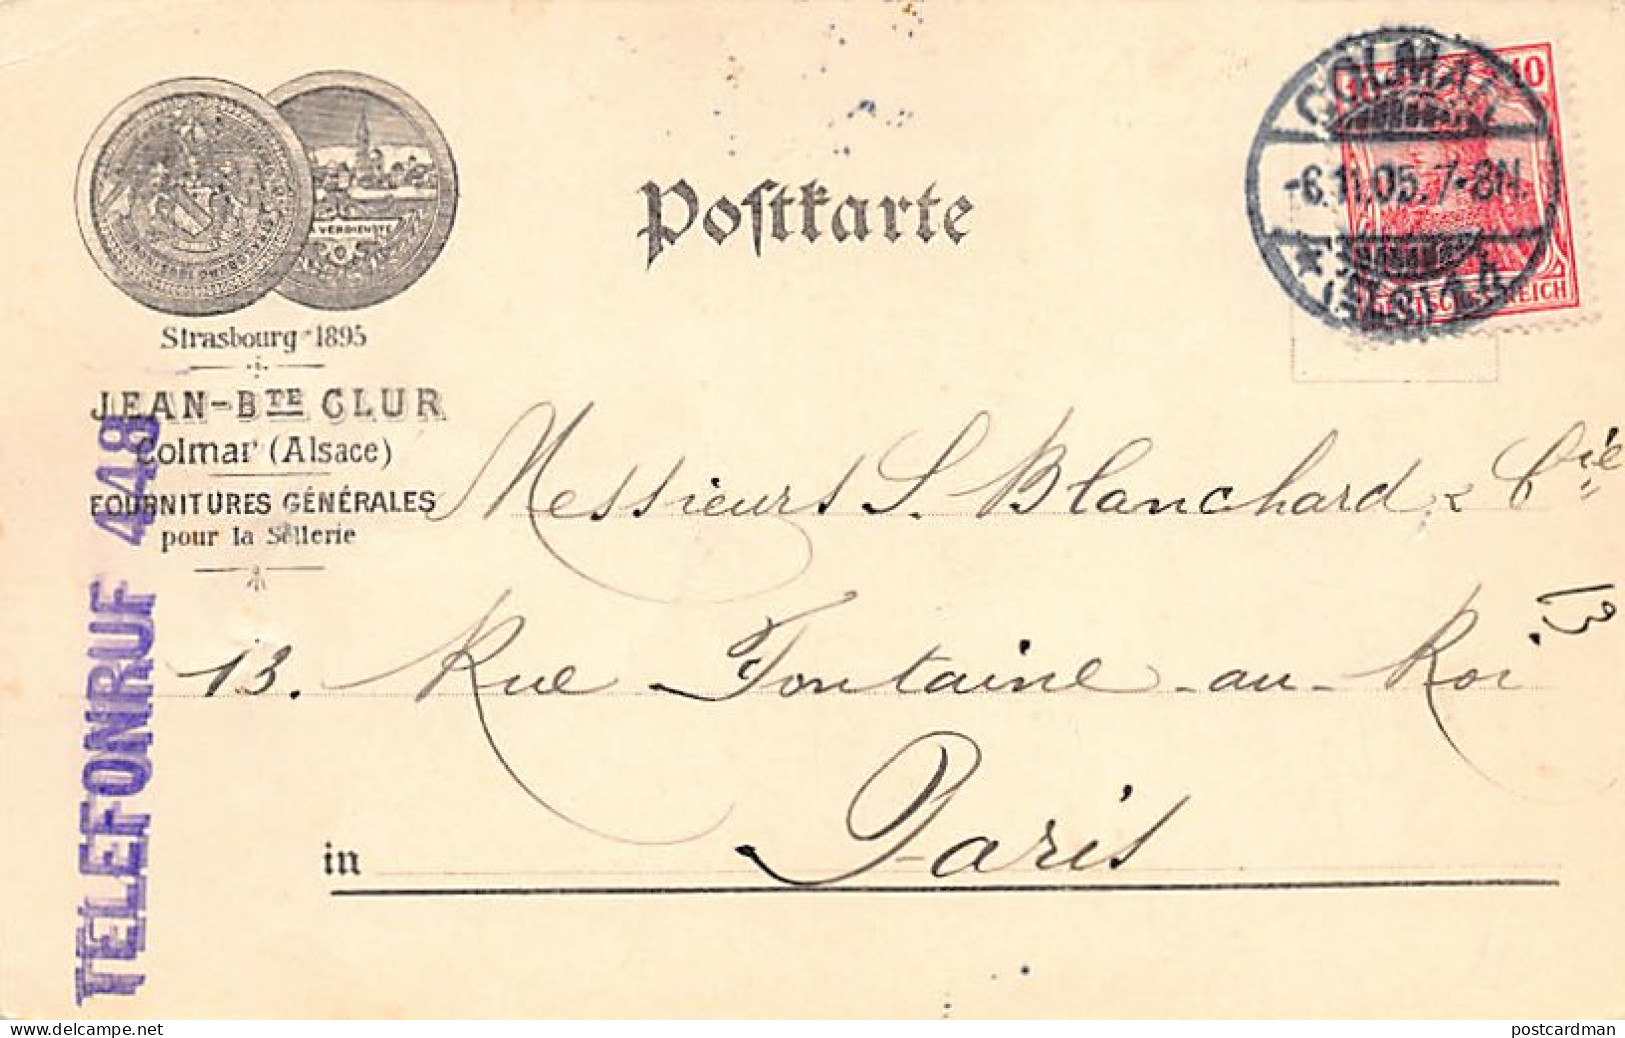 Postkarte
COLMAR
-6.11.05.7-8N.
* (ELS) * a
10
DEUTSCHES REICH
VERDIENSTE
Strasbourg 1895
JEAN-BTE CLUR
Colmar (Alsace)
FOURNITURES GÉNÉRALES
pour la Sellerie
TELEFONRUF 448
Messieurs S. Blanchard & Cie
13. Rue Fontaine-au-Roi
13.
in Paris
delcampe.net
postcardman